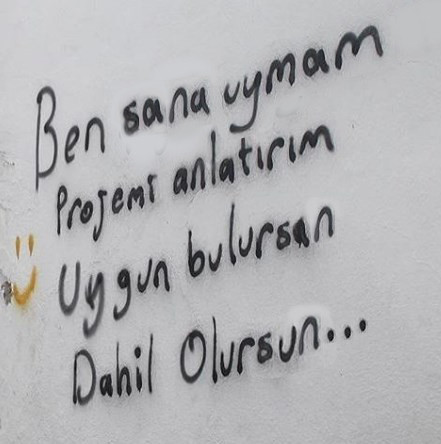 Ben sana uymam
Projemi anlatırım
Uygun bulursan
Dahil Olursun...